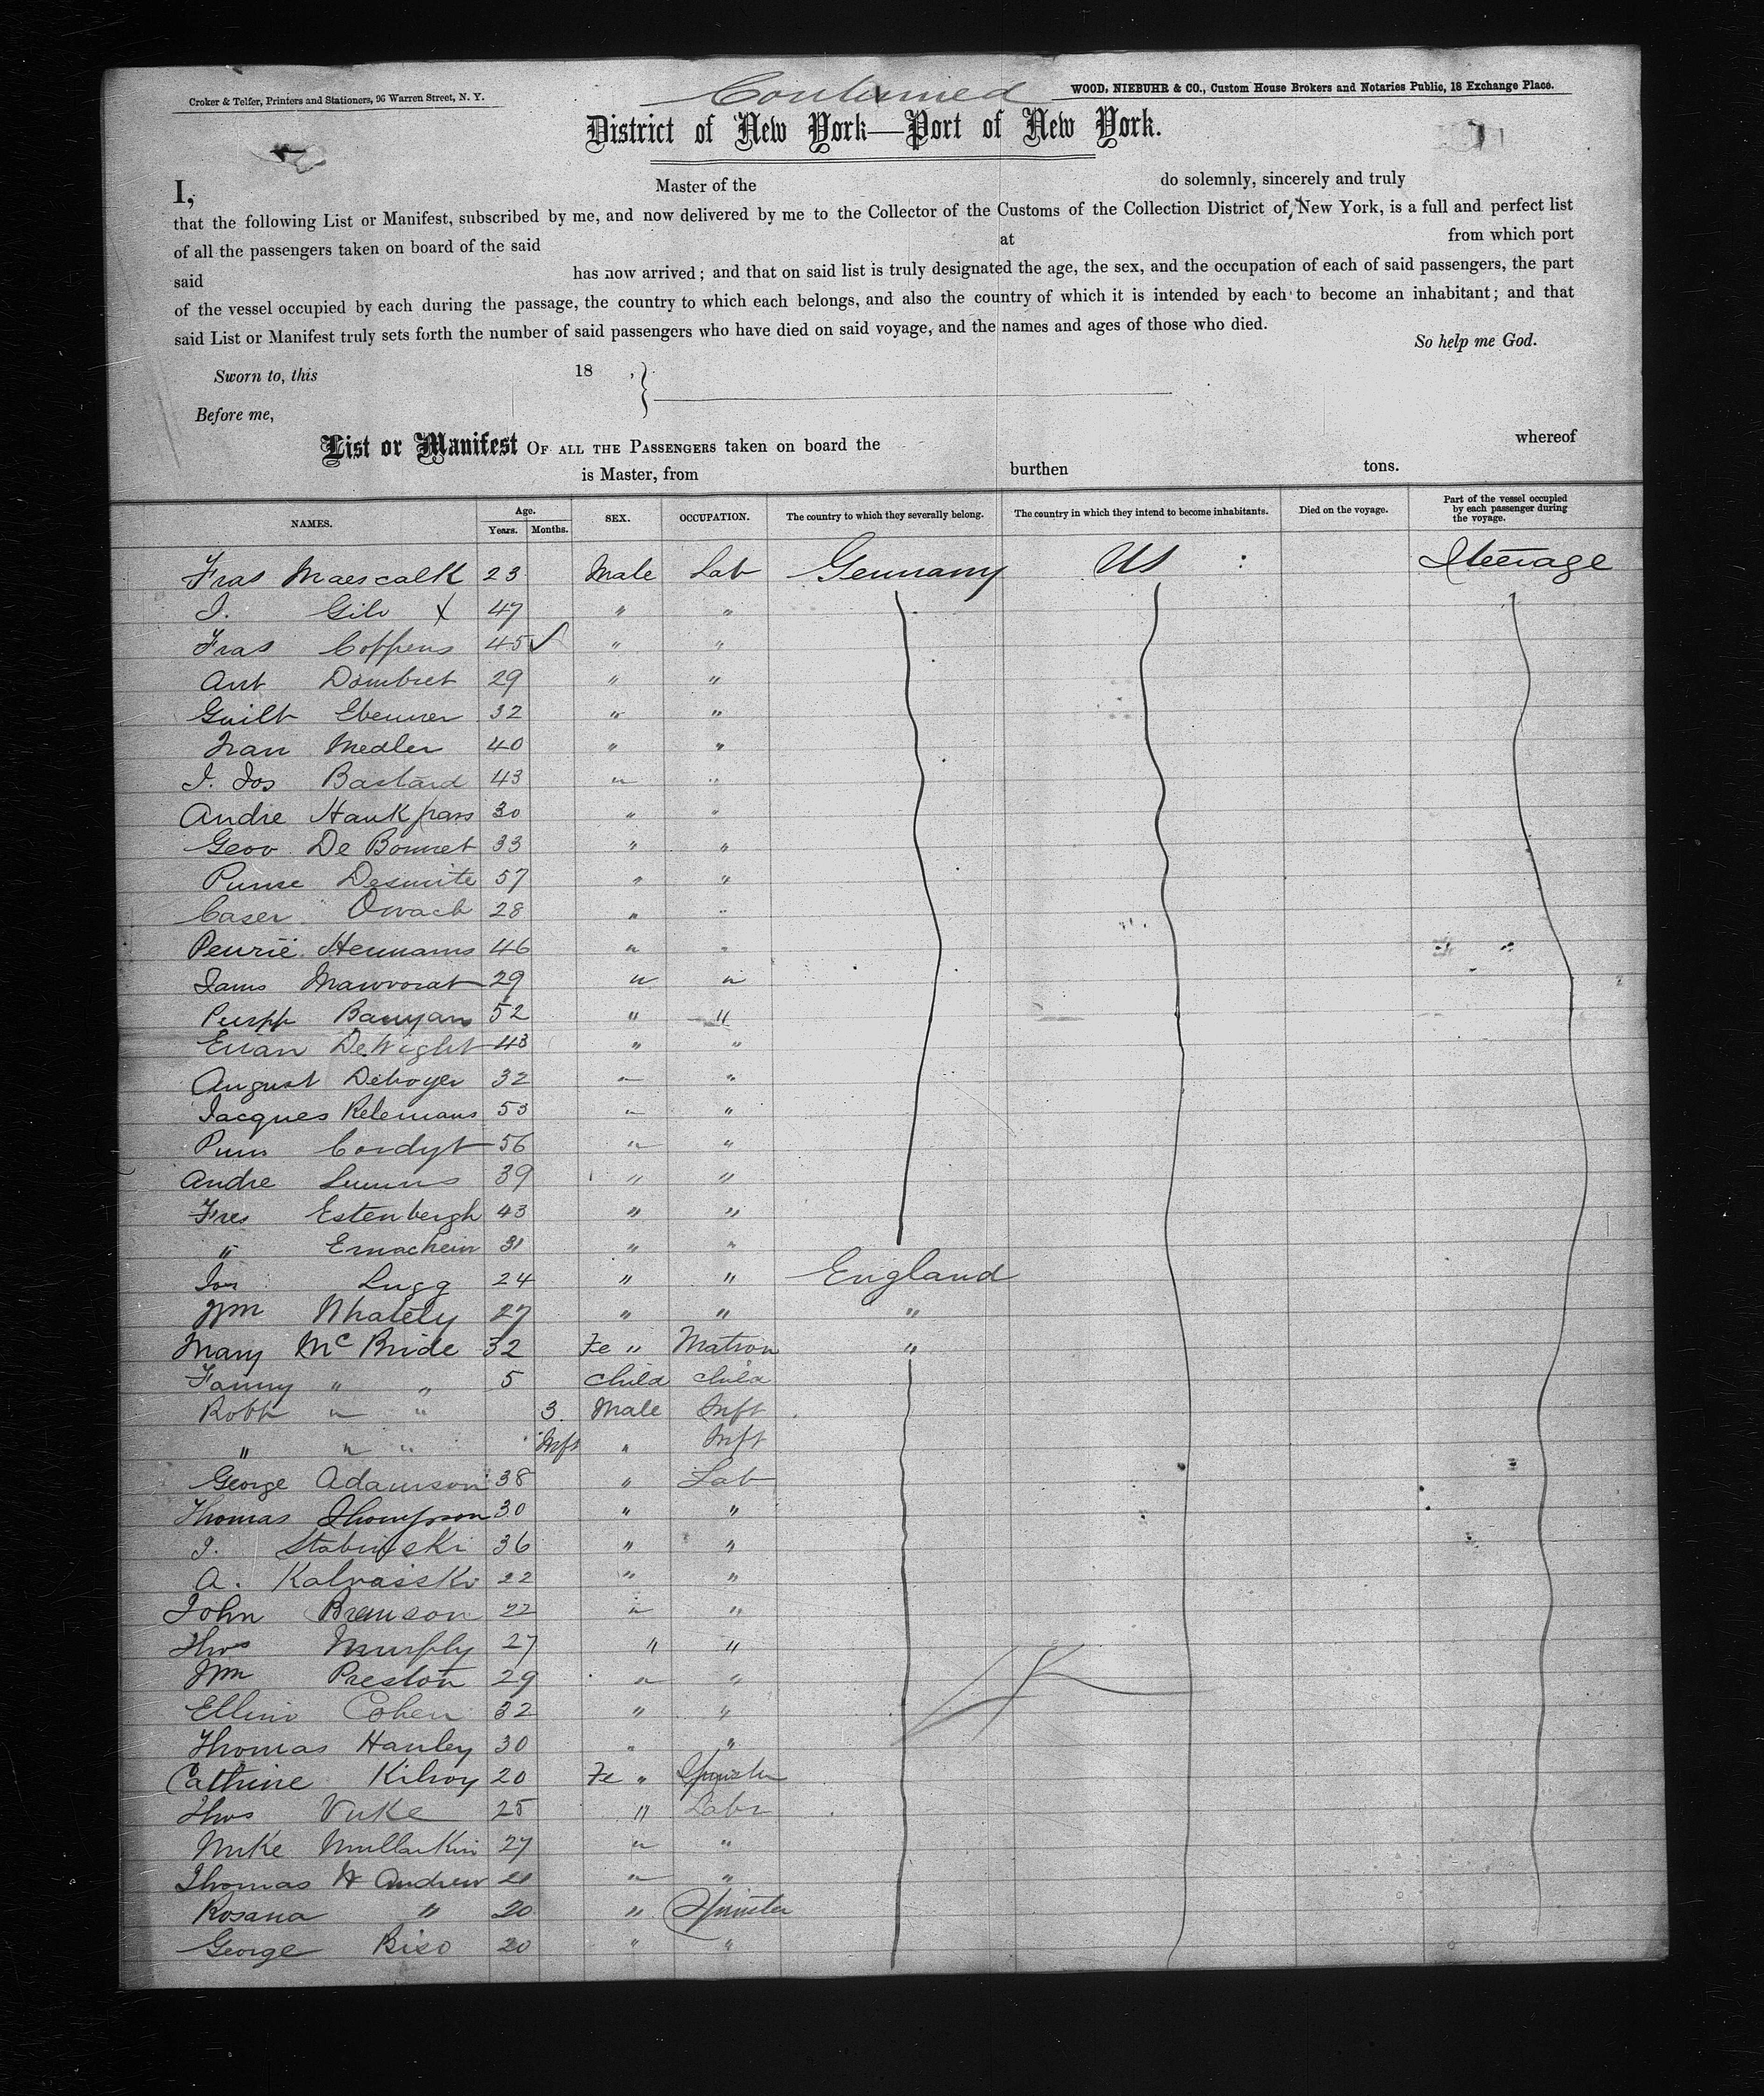 Continued
Croker & Telfer, Printers and Stationers, 96 Warren Street, N. Y.
WOOD, NIEBUHR & CO., Custom House Brokers and Notaries Public, 18 Exchange Place.
District of New York—Port of New York.
I, Master of the do solemnly, sincerely and truly
that the following List or Manifest, subscribed by me, and now delivered by me to the Collector of the Customs of the Collection District of New York, is a full and perfect list
of all the passengers taken on board of the said at from which port
said has now arrived; and that on said list is truly designated the age, the sex, and the occupation of each of said passengers, the part
of the vessel occupied by each during the passage, the country to which each belongs, and also the country of which it is intended by each to become an inhabitant; and that
said List or Manifest truly sets forth the number of said passengers who have died on said voyage, and the names and ages of those who died.
So help me God.
Sworn to, this 18 ,
Before me,
List or Manifest OF ALL THE PASSENGERS taken on board the whereof
is Master, from burthen tons.
NAMES. Age. Years. Months. SEX. OCCUPATION. The country to which they severally belong. The country in which they intend to become inhabitants. Died on the voyage. Part of the vessel occupied by each passenger during the voyage.
Fras Maescalk 23 Male Lab Germany US : Steerage
I. Gilo X 47 " "
Fras Coppens 45 ✓ " "
Ant Dombret 29 " "
Guilt Ebenner 32 " "
Medler 40 " "
I. Jos Bastard 43 " "
Andre Hauk 30 " "
Geoo De Bonnet 33 " "
Desmite 57 " "
Caser 28 " "
Hermans 46 " "
29 " "
Banyans 52 " "
Evan DeWight 43 " "
August Deboyer 32 " "
Jacques Relemans 53 " "
Cordyt 56 " "
Andre 39 " "
Fres Estenbergh 43 " "
" Ernachein 31 " "
Jos Lugg 24 " " England
Wm Whately 27 " " "
Mary McBride 32 Fe " Matron "
Fanny " " 5 Child child
Robt " " 3. Male Inft
" " " Inft " Inft
George Adamson 38 " Lab
Thomas Thompson 30 " "
I. Stabinski 36 " "
A. Kalvasski 22 " "
John Bramson 22 " "
Thos Murphy 27 " "
Wm Preston 29 " "
Cohen 32 " "
Thomas Hanley 30 " "
Cathrine Kilroy 20 Fe " Spinster
Thos Vuke 25 " Labr
Mike Mullarkin 27 " "
Thomas H Andrew 21 " "
Rosana " 20 " Spinster
George Biso 20 " "